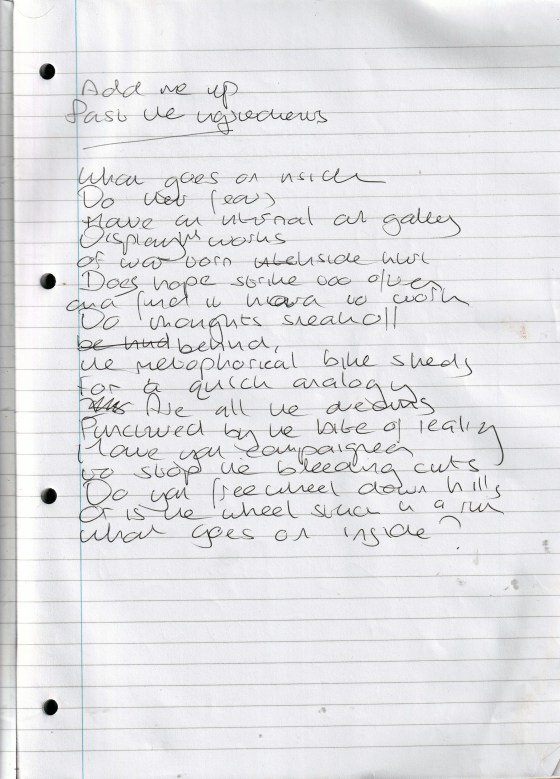 Add me up
Past the ingredients
What goes on inside
Do their fears
Have an internal art gallery
Displaying works
of war born inside
Does hope strike too often
and find it hard to work
Do thoughts sneak off
be hind behind,
the metaphorical bike sheds
For a quick analogy
Are all the dreams
Punctured by the bite of reality
Have you campaigned
to stop the bleeding cuts
Do you freewheel down hills
Or is the wheel stuck in a rut
What goes on inside?